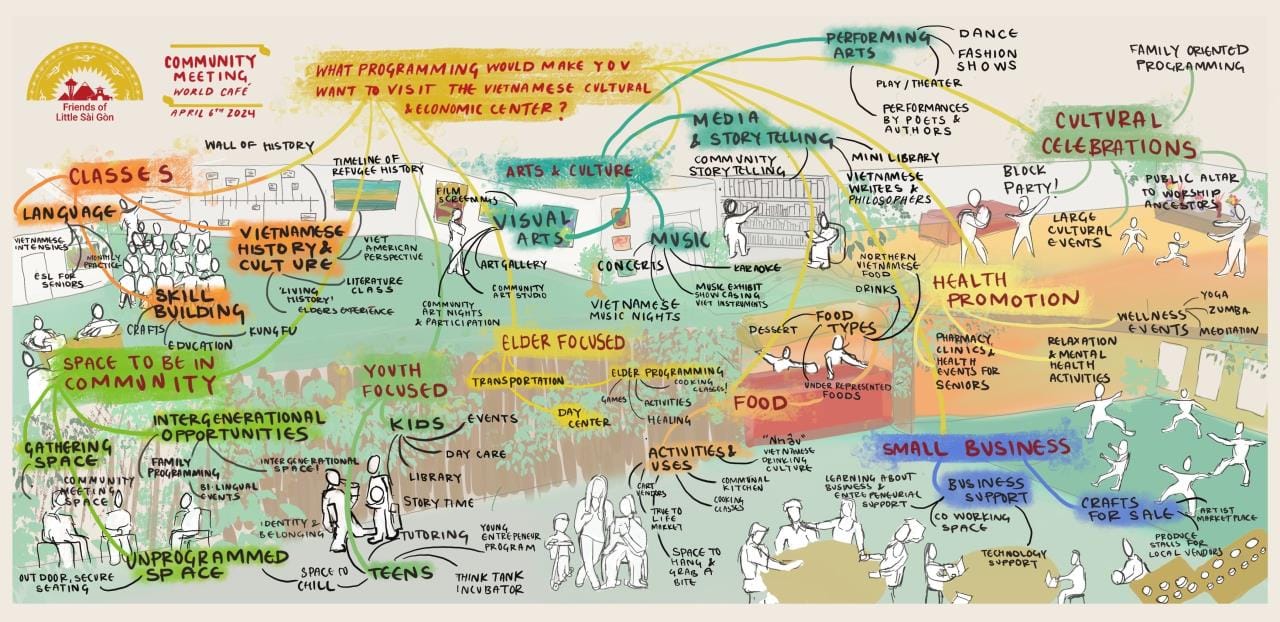 Friends of
Little Sài Gòn
COMMUNITY
MEETING,
WORLD CAFÉ
APRIL 6TH 2024
WHAT PROGRAMMING WOULD MAKE YOU
WANT TO VISIT THE VIETNAMESE CULTURAL
& ECONOMIC CENTER?
CLASSES
LANGUAGE
VIETNAMESE
INTENSIVE
MONTHLY
PRACTICE
ESL FOR
SENIORS
WALL OF HISTORY
TIMELINE OF
REFUGEE HISTORY
VIETNAMESE
HISTORY &
CULTURE
VIET
AMERICAN
PERSPECTIVE
LITERATURE
CLASS
'LIVING
HISTORY'
ELDERS EXPERIENCE
SKILL
BUILDING
CRAFTS
EDUCATION
KUNG FU
ARTS & CULTURE
FILM
SCREENINGS
VISUAL
ARTS
ART GALLERY
COMMUNITY
ART STUDIO
COMMUNITY
ART NIGHTS
& PARTICIPATION
MUSIC
CONCERTS
KARAOKE
VIETNAMESE
MUSIC NIGHTS
MUSIC EXHIBIT
SHOWCASING
VIET INSTRUMENTS
MEDIA
& STORYTELLING
COMMUNITY
STORYTELLING
MINI LIBRARY
VIETNAMESE
WRITERS &
PHILOSOPHERS
PERFORMING
ARTS
DANCE
FASHION
SHOWS
PLAY / THEATER
PERFORMANCES
BY POETS &
AUTHORS
FAMILY ORIENTED
PROGRAMMING
CULTURAL
CELEBRATIONS
BLOCK
PARTY!
PUBLIC ALTAR
TO WORSHIP
ANCESTORS
LARGE
CULTURAL
EVENTS
HEALTH
PROMOTION
WELLNESS
EVENTS
YOGA
ZUMBA
MEDITATION
PHARMACY,
CLINICS &
HEALTH
EVENTS FOR
SENIORS
RELAXATION
& MENTAL
HEALTH
ACTIVITIES
NORTHERN
VIETNAMESE
FOOD
DRINKS
FOOD
TYPES
DESSERT
UNDER REPRESENTED
FOODS
FOOD
ACTIVITIES &
USES
"Nhậu"
VIETNAMESE
DRINKING
CULTURE
COMMUNAL
KITCHEN
COOKING
CLASSES
CART
VENDORS
TRUE TO
LIFE
MARKET
SPACE TO
HANG &
GRAB A
BITE
ELDER FOCUSED
TRANSPORTATION
DAY
CENTER
ELDER PROGRAMMING
COOKING
CLASSES!
GAMES
ACTIVITIES
HEALING
YOUTH
FOCUSED
KIDS
EVENTS
DAY CARE
LIBRARY
STORY TIME
TUTORING
YOUNG
ENTREPENEUR
PROGRAM
TEENS
THINK TANK
INCUBATOR
SPACE TO
CHILL
IDENTITY &
BELONGING
SPACE TO BE IN
COMMUNITY
INTERGENERATIONAL
OPPORTUNITIES
FAMILY
PROGRAMMING
INTERGENERATIONAL
SPACE!
BILINGUAL
EVENTS
GATHERING
SPACE
COMMUNITY
MEETING
SPACE
UNPROGRAMMED
SPACE
OUTDOOR, SECURE
SEATING
SMALL BUSINESS
LEARNING ABOUT
BUSINESS &
ENTREPENEURIAL
SUPPORT
BUSINESS
SUPPORT
CO WORKING
SPACE
TECHNOLOGY
SUPPORT
CRAFTS
FOR SALE
ARTIST
MARKETPLACE
PRODUCE
STALLS FOR
LOCAL VENDORS